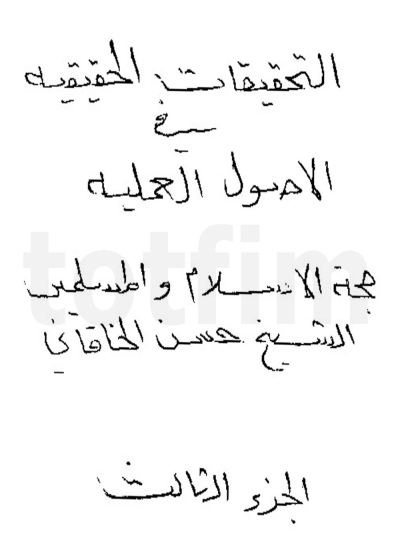 التحقيقات الحقيقيه
في
الاصول العمليه
حجة الاسلام والمسلمين
الشيخ حسن الخاقاني
الجزء الثالث
totfim